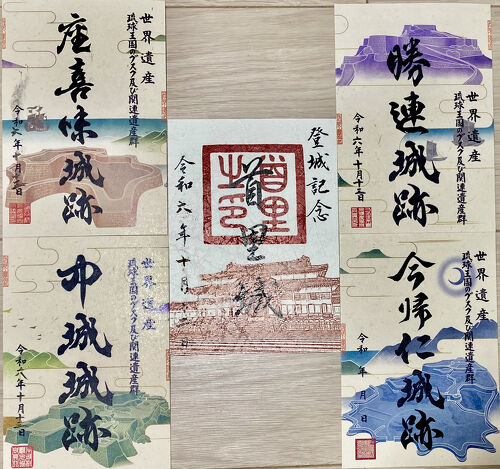 世界遺産
琉球王国のグスク及び関連遺産群
座喜味城跡
令和六年十月十二日
世界遺産
琉球王国のグスク及び関連遺産群
勝連城跡
令和六年十月十二日
登城記念
首里城
令和六年十月
世界遺産
琉球王国のグスク及び関連遺産群
中城城跡
令和六年十月十二日
世界遺産
琉球王国のグスク及び関連遺産群
今帰仁城跡
令和 年 月 日